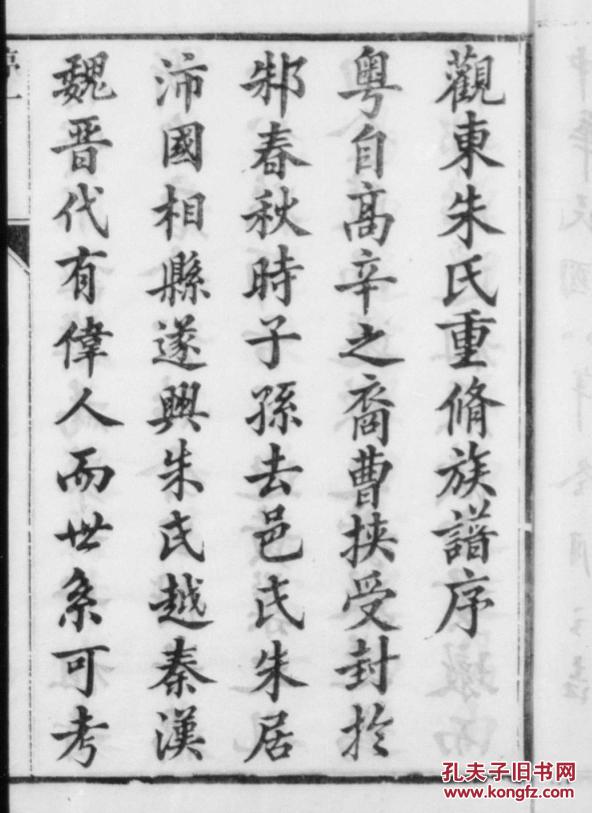 觀東朱氏重脩族譜序
粤自高辛之裔曹挾受封於
邾春秋時子孫去邑氏朱居
沛國相縣遂興朱氏越秦漢
魏晋代有偉人而世系可考
孔夫子旧书网
www.kongfz.com